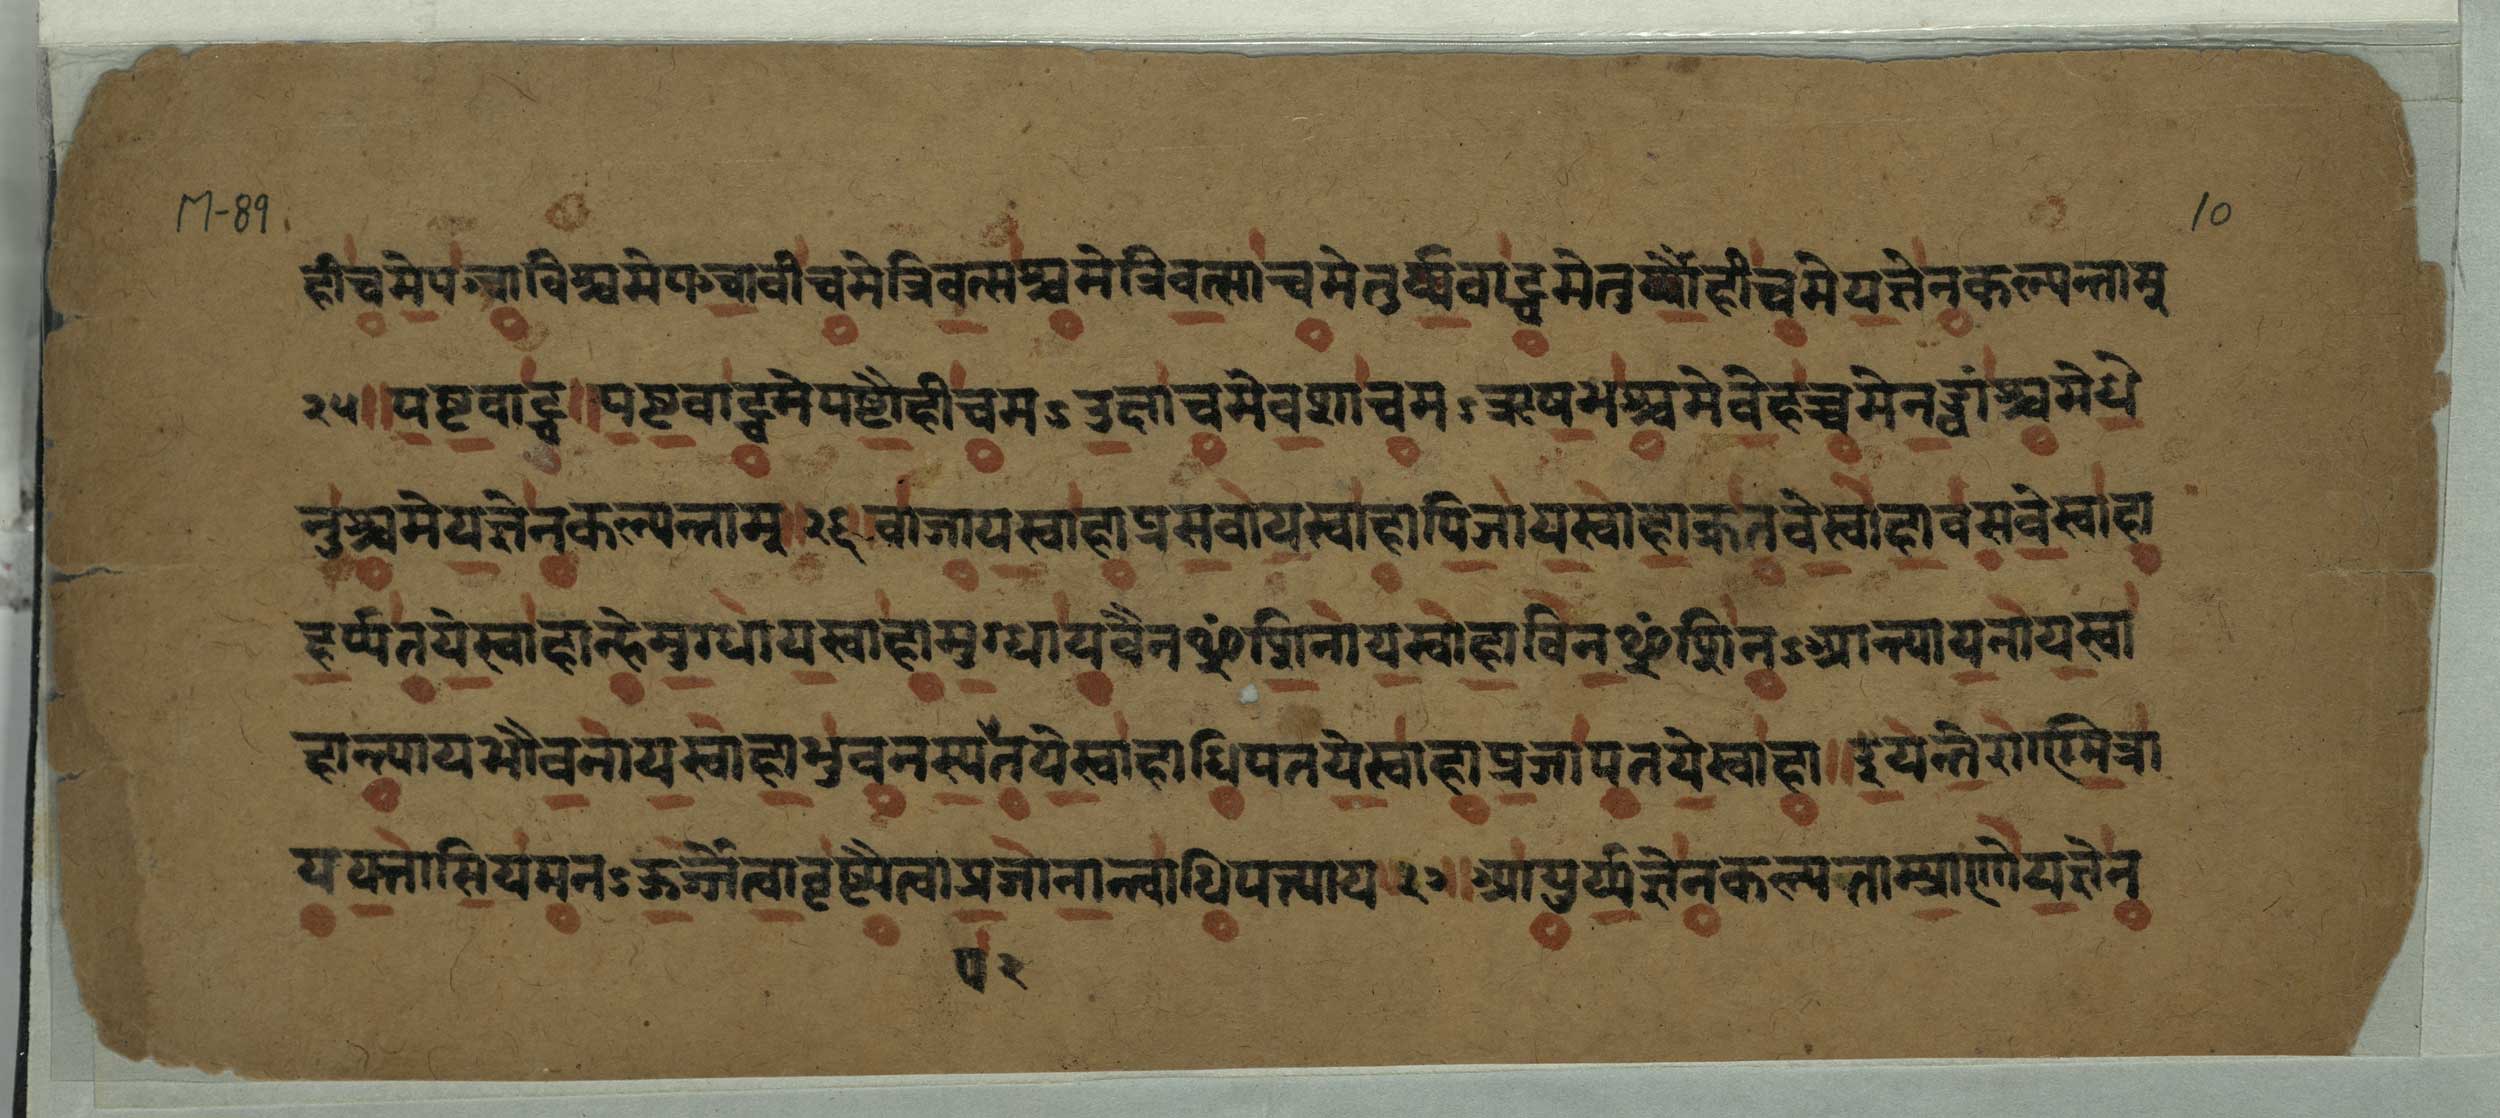 M-89
10
हीचमेपञ्चाविश्चमेपञ्चावीचमेत्रिवत्सश्चमेत्रिवत्साचमेतुर्य्यवाट्चमेतुर्य्यौहीचमेयज्ञेनकल्पन्ताम्
२५॥पष्टवाट्च॥पष्टवाट्चमेपष्टौहीचमऽउक्षाचमेवशाचमऽऋषभश्चमेवेहच्चमेनड्वाँश्चमेधे
नुश्चमेयज्ञेनकल्पन्ताम्॥२६॥वाजायस्वाहाप्रसवायस्वाहापिजायस्वाहाक्रतवेस्वाहावसवेस्वाहा
हर्प्पतयेस्वाहान्हेमुग्धायस्वाहामुग्धायवैनꣳशिनायस्वाहाविनꣳशिनऽआन्त्यायनायस्वा
हान्त्यायभौवनायस्वाहाभुवनस्यपतयेस्वाहाधिपतयेस्वाहाप्रजापतयेस्वाहा॥इयन्तेराण्मित्रा
ययन्तासियमनऽऊर्ज्जेत्वावृष्ट्यैत्वाप्रजानान्त्वाधिपत्याय॥२७॥आयुर्य्यज्ञेनकल्पताम्प्राणोयज्ञेन
प २